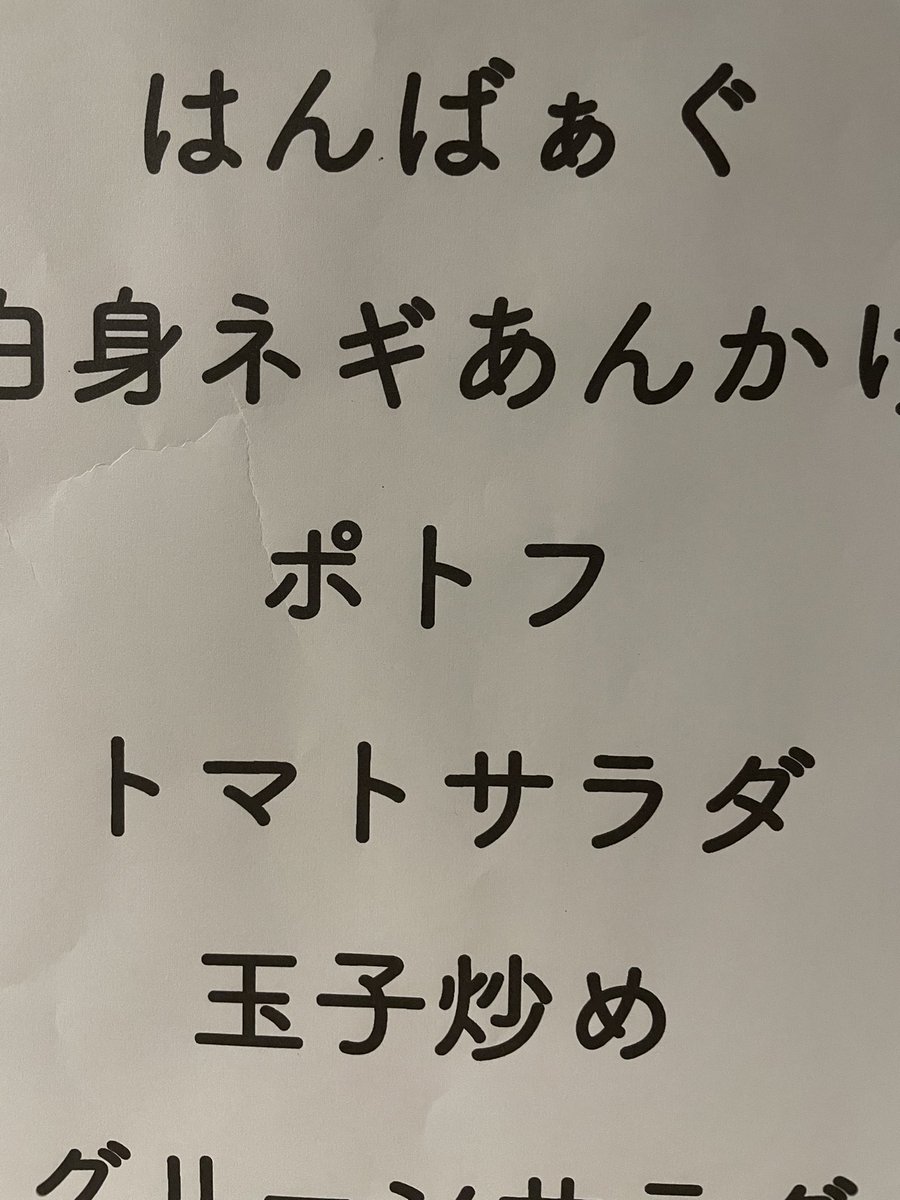 はんばぁぐ
白身ネギあんかけ
ポトフ
トマトサラダ
玉子炒め
グリーンサラダ